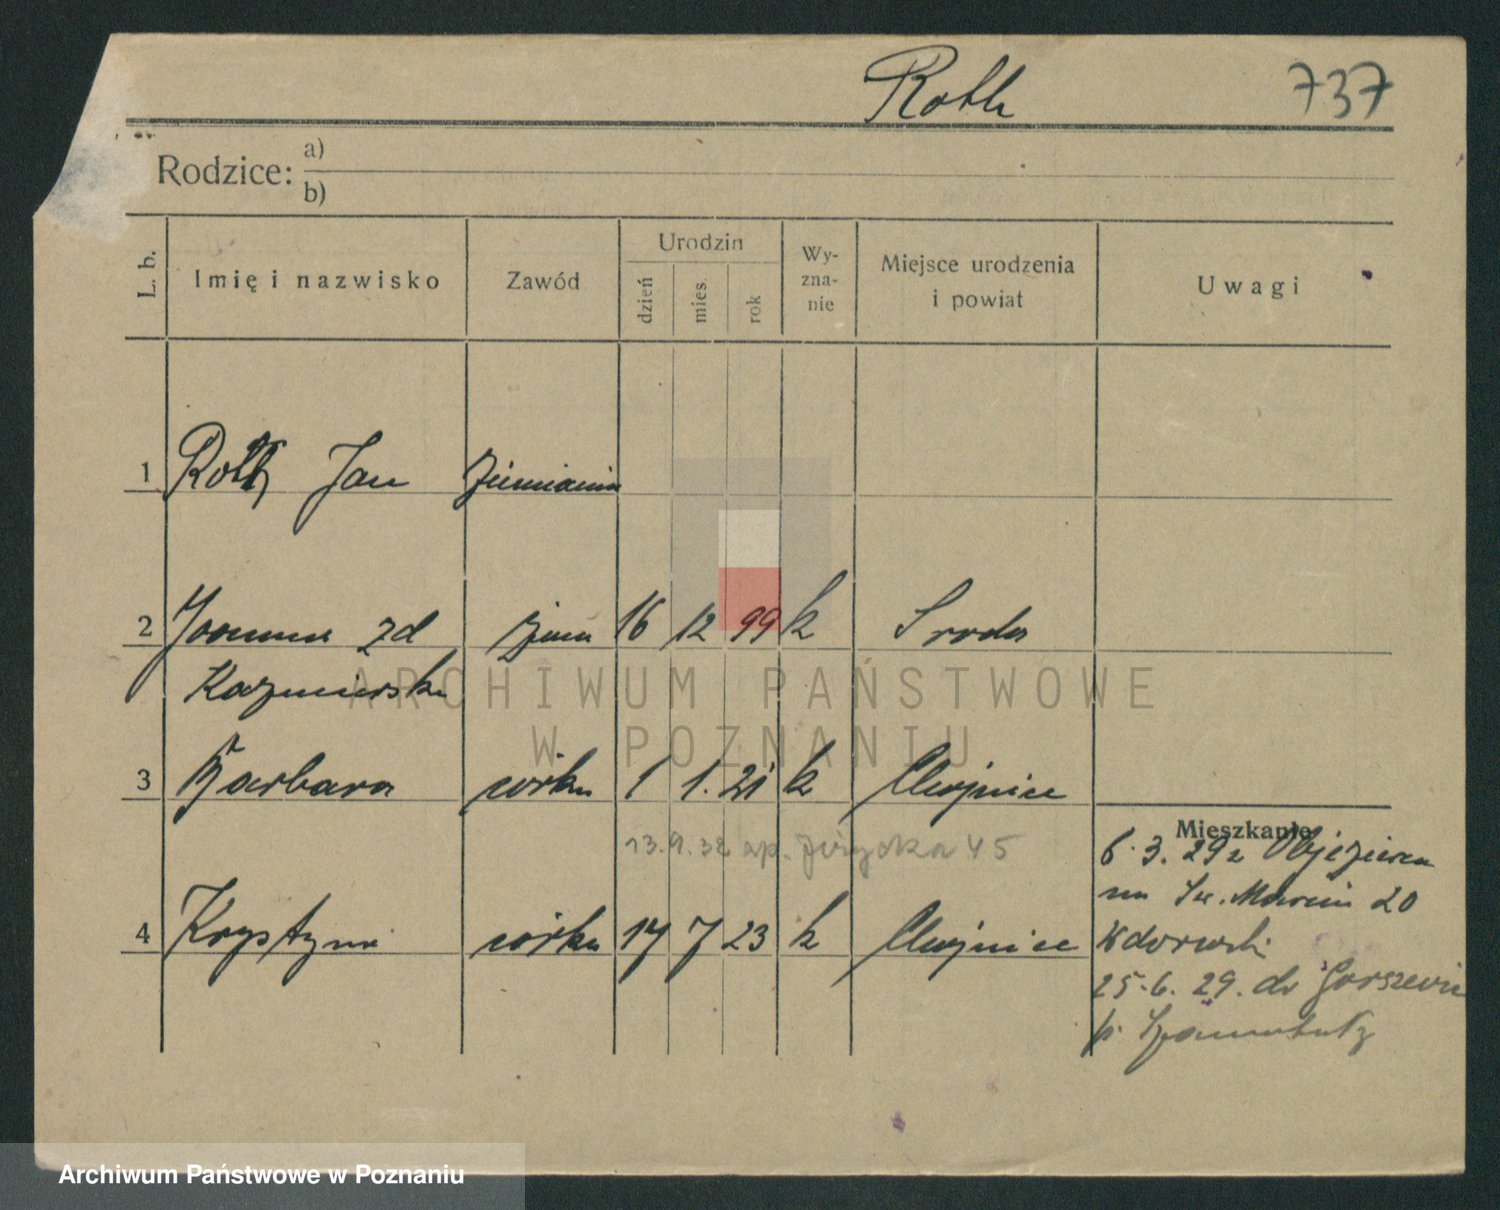 Roth 737
Rodzice: a)
b)
L. b. Imię i nazwisko Zawód Urodzin dzień mies. rok Wy-zna-nie Miejsce urodzenia i powiat Uwagi
1 Roth Jan ziemianin
2 Joanna zd żona 16 12 99 k Sroda
Kazmierska
3 Barbara córka 1 1. 21 k Chojnice
Mieszkanie
13.9.32 ap. Jeżycka 45
6.3.29 z Objezierza
na Św. Marcin 20
4 Krystyna córka 17 7 23 k Chojnice
25.6.29. do
p. Szamotuły
ARCHIWUM PAŃSTWOWE
W POZNANIU
Archiwum Państwowe w Poznaniu